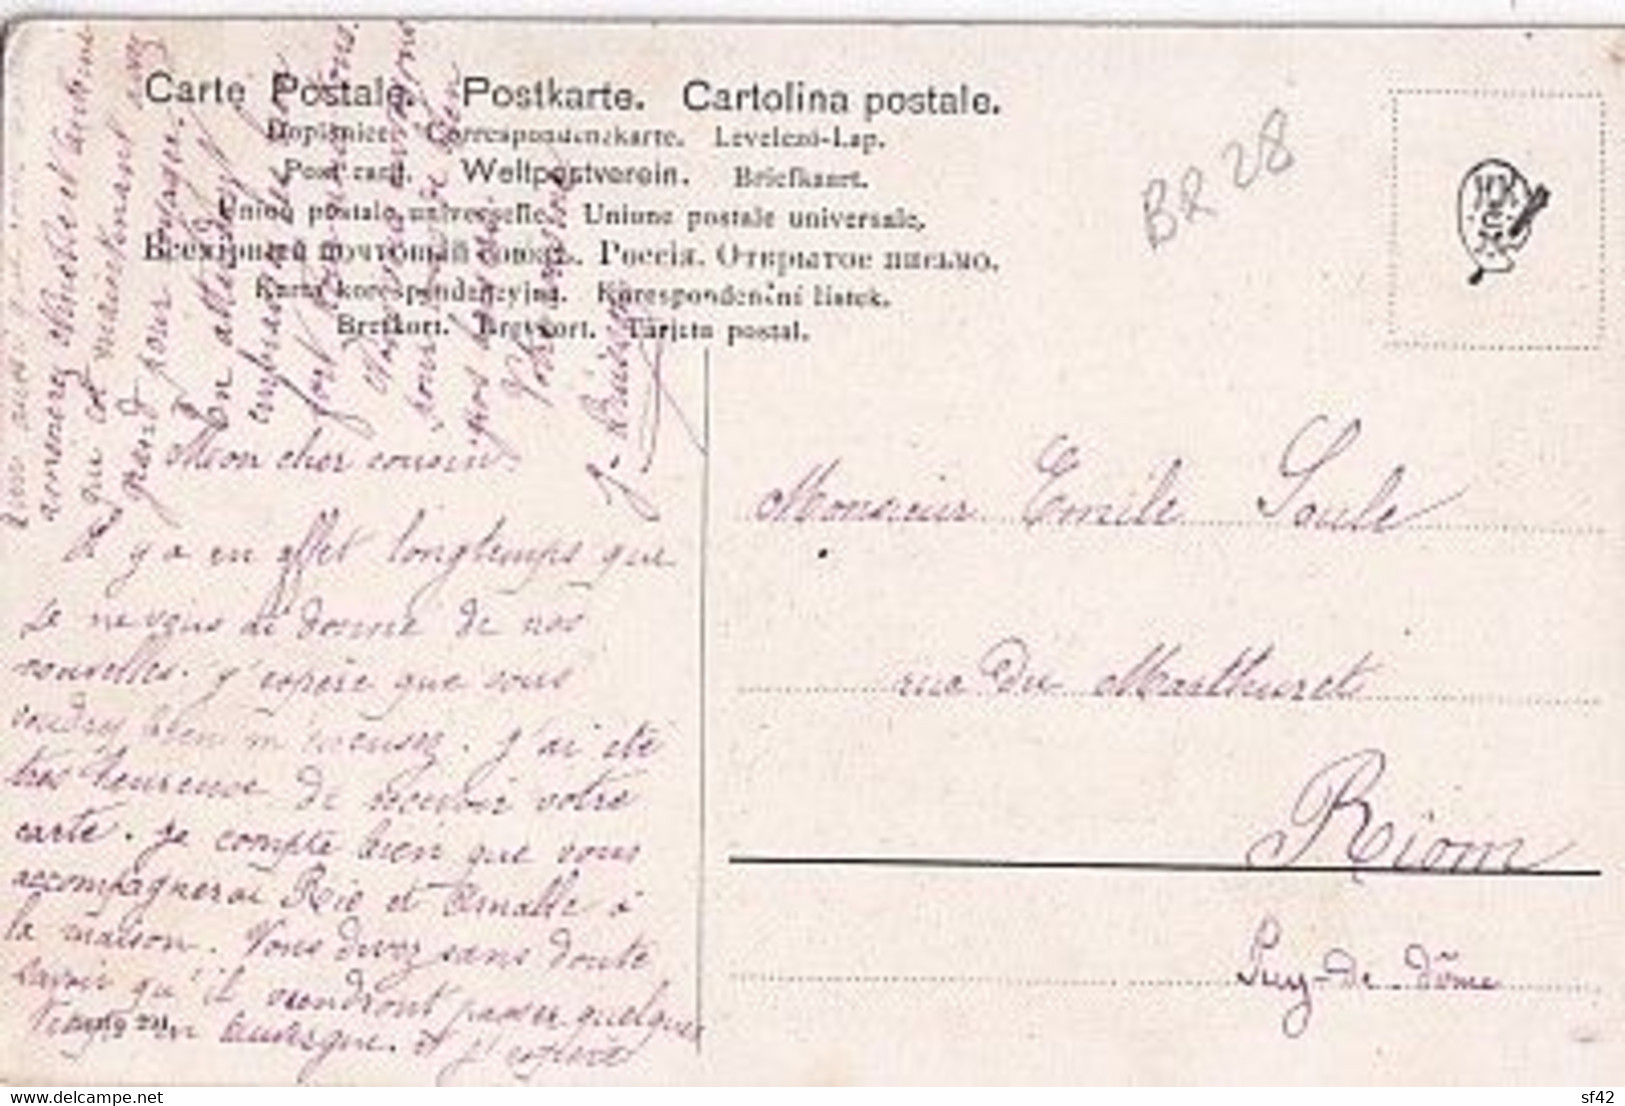 Carte Postale. Postkarte. Cartolina postale.
Dopisnice. Correspondenzkarte. Levelező-Lap.
Post card. Weltpostverein. Briefkaart.
Union postale universelle. Unione postale universale.
Всемірный почтовый союзъ. Россія. Открытое письмо.
Karta korespondencyjna. Korespondenční lístek.
Brefkort. Brevkort. Tarjeta postal.
BR 28
Mon cher cousin.
Il y a en effet longtemps que
je ne vous ai donné de nos
nouvelles. j'espère que vous
voudrez bien m'excuser. j'ai été
très heureuse de recevoir votre
carte. je compte bien que vous
accompagnerai et à
la maison. Vous devez sans doute
savoir qu'il viendront passer quelque
temps en Auvergne. et j'espère
amènerez et Antoine
qui est maintenant assez
grand pour voyager.
En attendant
embrasse
fort
nous
gros baisers
Votre cousine
Monsieur Emile Soule
rue du Marthuret
Riom
Puy-de-dôme
sf42